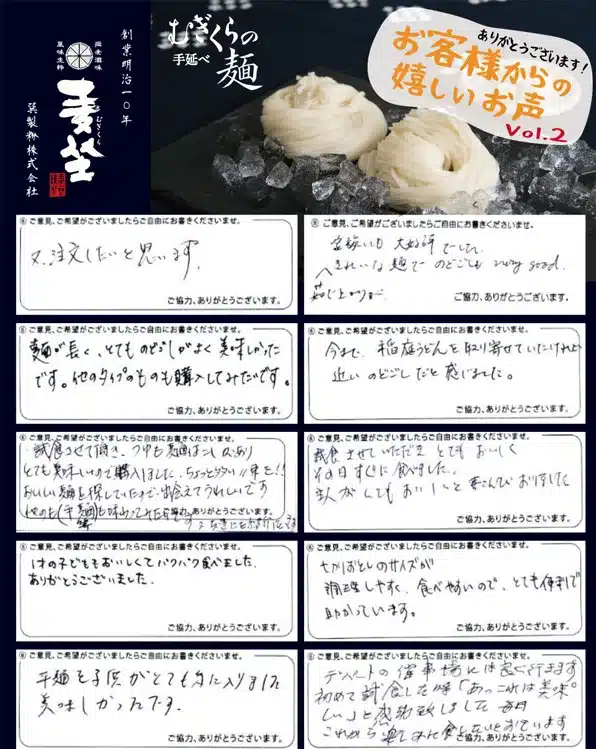 厳選滋味
風味生粋
創業明治一〇年
むぎくら
麦坐
巽製粉株式会社
むぎくらの
手延べ
麺
ありがとうございます!
お客様からの
嬉しいお声
Vol.2
ご意見、ご希望がございましたらご自由にお書きくださいませ。
又、注文したいと思います。
ご協力、ありがとうございます。
ご意見、ご希望がございましたらご自由にお書きくださいませ。
大好評でした。
きれいな麺で のどごしも very good.
茹で上がりが
ご協力、ありがとうございます。
ご意見、ご希望がございましたらご自由にお書きくださいませ。
麺が長く、とてものどごしがよく美味しかった
です。他のタイプのものも購入してみたいです。
ご協力、ありがとうございます。
ご意見、ご希望がございましたらご自由にお書きくださいませ。
今まで、稲庭うどんを取り寄せていたけれど
近いのどごしだと感じました。
ご協力、ありがとうございます。
ご意見、ご希望がございましたらご自由にお書きくださいませ。
試食させて頂き、つやも麺のこしもあり
とても美味しいので購入しました。
おいしい麺を探していたので出会えてうれしいです
ご協力、ありがとうございます。
ご意見、ご希望がございましたらご自由にお書きくださいませ。
試食させていただき とてもおいしく
その日すぐに食べました。
主人がとてもおいしいと
ご協力、ありがとうございます。
ご意見、ご希望がございましたらご自由にお書きくださいませ。
1才の子どももおいしくてパクパク食べました。
ありがとうございました。
ご協力、ありがとうございます。
ご意見、ご希望がございましたらご自由にお書きくださいませ。
切りおとしのサイズが
調理しやすく、食べやすいので、とても便利で
助かっています。
ご協力、ありがとうございます。
ご意見、ご希望がございましたらご自由にお書きくださいませ。
平麺を子供がとても気に入りました
美味しかったです。
ご協力、ありがとうございます。
ご意見、ご希望がございましたらご自由にお書きくださいませ。
デパートの催事場には良く行きます
初めて試食した時「あっこれは美味
しい」と感激致しました